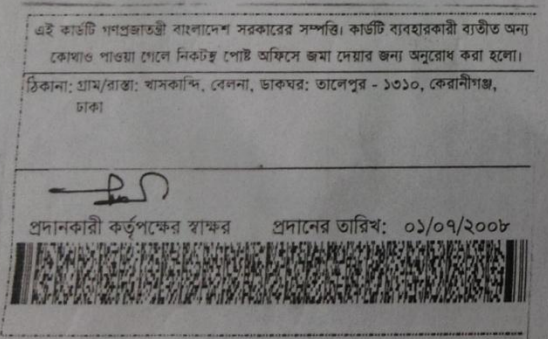 এই কার্ডটি গণপ্রজাতন্ত্রী বাংলাদেশ সরকারের সম্পত্তি। কার্ডটি ব্যবহারকারী ব্যতীত অন্য
কোথাও পাওয়া গেলে নিকটস্থ পোষ্ট অফিসে জমা দেয়ার জন্য অনুরোধ করা হলো।
ঠিকানা: গ্রাম/রাস্তা: খাসকান্দি, বেলনা, ডাকঘর: তালেপুর - ১৩১০, কেরানীগঞ্জ,
ঢাকা
প্রদানকারী কর্তৃপক্ষের স্বাক্ষর প্রদানের তারিখ: ০১/০৭/২০০৮